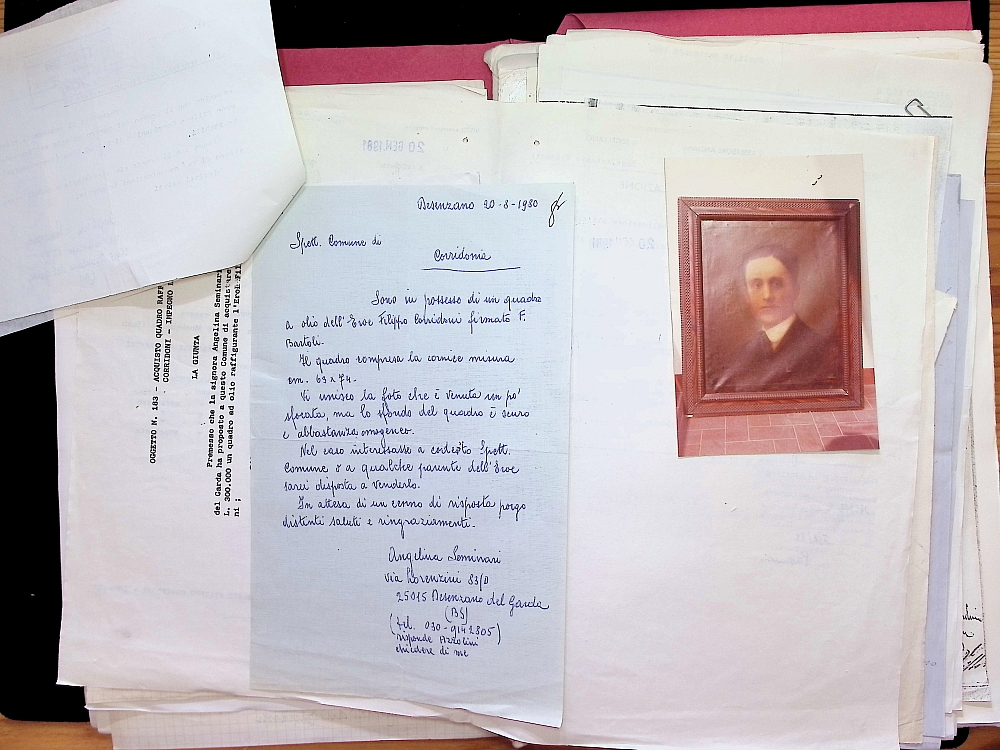 20 GEN. 1981
Desenzano 20-8-1980
Spett. Comune di
Corridonia
Sono in possesso di un quadro
a olio dell'Eroe Filippo Corridoni firmato F.
Bartoli.
Il quadro compresa la cornice misura
cm. 63 x 74.
Vi unisco la foto che è venuta un po'
sfocata, ma lo sfondo del quadro è scuro
e abbastanza omogeneo.
Nel caso interessasse a codesto Spett.
Comune o a qualche parente dell'Eroe
sarei disposta a venderlo.
In attesa di un cenno di risposta porgo
distinti saluti e ringraziamenti.
Angelina Seminari
via Lorenzini 83/D
25015 Desenzano del Garda
(BS)
(tel. 030-9142805)
risponde Azzolini
chiedere di me
OGGETTO N. 183 - ACQUISTO QUADRO RAFF
CORRIDONI - IMPEGNO
LA GIUNTA
Premesso che la signora Angelina Seminari
del Garda ha proposto a questo Comune di acquistare
L. 300.000 un quadro ad olio raffigurante l'Eroe Fil
ni ;